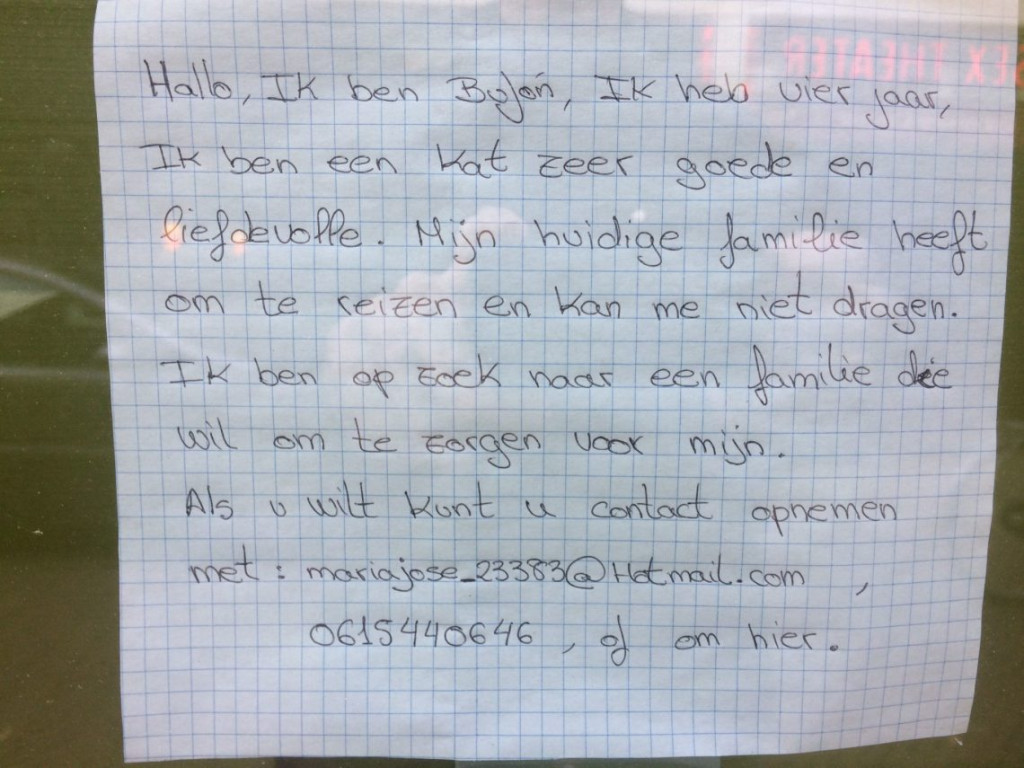 SEX THEATER
Hallo, Ik ben Bojoń, Ik heb vier jaar,
Ik ben een kat zeer goede en
liefdevolle. Mijn huidige familie heeft
om te reizen en kan me niet dragen.
Ik ben op zoek naar een familie die
wil om te zorgen voor mijn.
Als u wilt kunt u contact opnemen
met : mariajose_23383@Hotmail.com ,
0615440646 , of om hier.